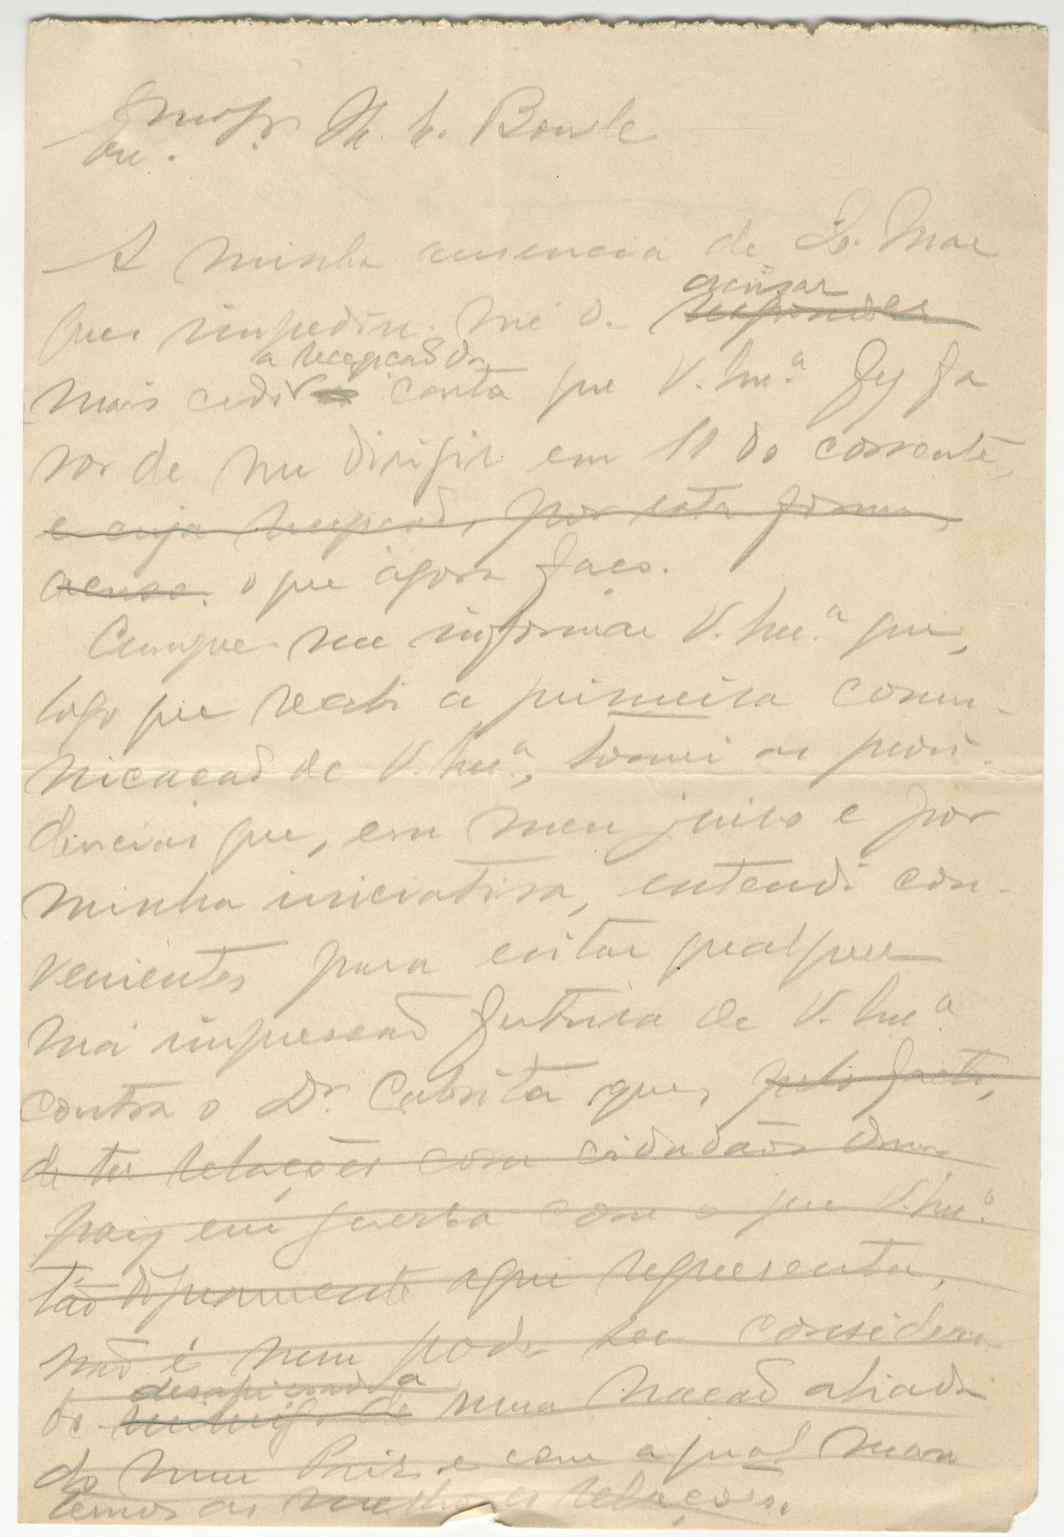 Exmo Sr. H. W. Bowle
A minha ausencia de S. Mar
acusar
ques impediu-me de responder
a recepção da
mais cedo carta que V. Exª fez fa
vor de me dirigir em 11 do corrente,
e cuja recepção, por esta forma,
acuso. o que agora faço.
Cumpre-me informar V. Exª que,
logo que recebi a primeira comu-
nicação de V. Exª, tomei as provi-
dencias que, em meu juizo e por
minha iniciativa, entendi con-
venientes para evitar qualquer
má impressão futura de V. Exª
contra o Dr. Cabrita que, pelo facto,
de ter relações com cidadãos dum
paiz em guerra com o que V. Exª
tão dignamente aqui representa,
não é nem pode ser considera-
desafeiçoada
do inimigo de uma nação aliada
do meu Paiz e com a qual man
temos as melhores relações.